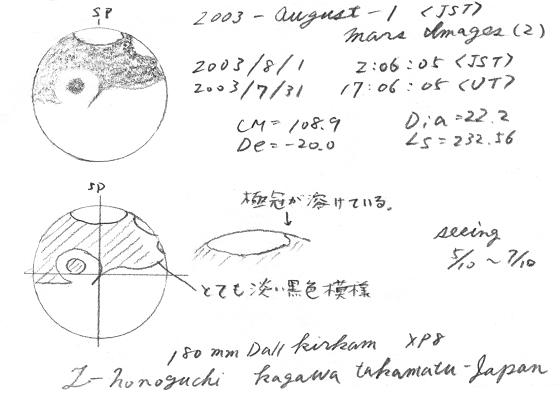 SP
2003-August-1 <JST>
Mars Images (2)
2003/8/1 2:06:05 <JST>
2003/7/31 17:06:05 <UT>
CM=108.9 Dia=22.2
De=-20.0 LS=232.56
SP
極冠が溶けている。
seeing
5/10~7/10
とても淡い黒色模様
180mm Dall Kirkam XP8
I-honoguchi Kagawa takamatu-Japan